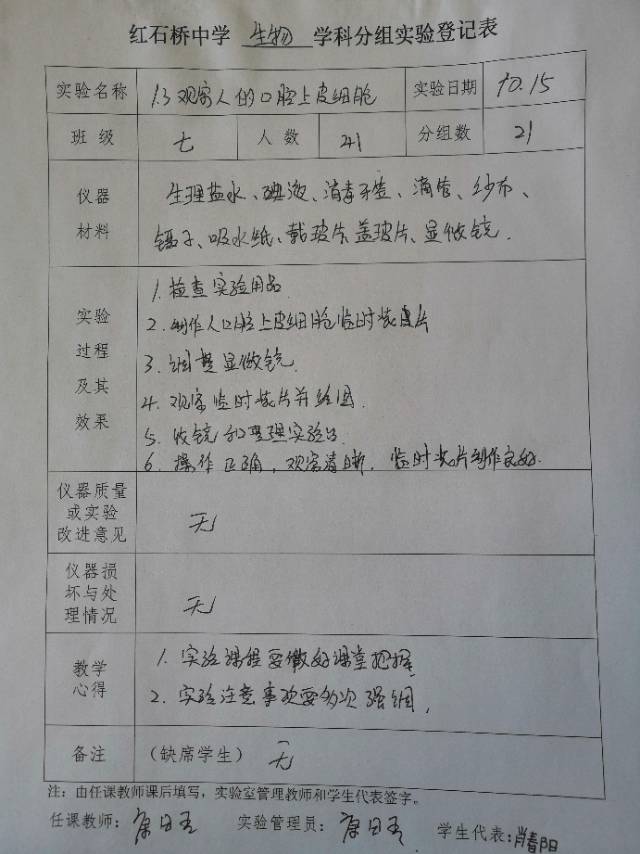 红石桥中学 生物 学科分组实验登记表
实验名称 1.3 观察人的口腔上皮细胞 实验日期 10.15
班 级 七 人 数 41 分组数 21
仪器 材料
生理盐水、碘液、消毒牙签、滴管、纱布、
镊子、吸水纸、载玻片、盖玻片、显微镜.
实验 过程 及其 效果
1. 检查实验用品
2. 制作人口腔上皮细胞临时装片
3. 调整显微镜.
4. 观察临时装片并绘图.
5. 收镜和整理实验台.
6. 操作正确, 观察清晰, 临时装片制作良好.
仪器质量 或实验 改进意见 无
仪器损 坏与处 理情况 无
教学 心得
1. 实验课程要做好课堂把握
2. 实验注意事项要多次强调,
备注 (缺席学生) 无
注:由任课教师课后填写,实验室管理教师和学生代表签字。
任课教师: 实验管理员: 学生代表:肖春阳